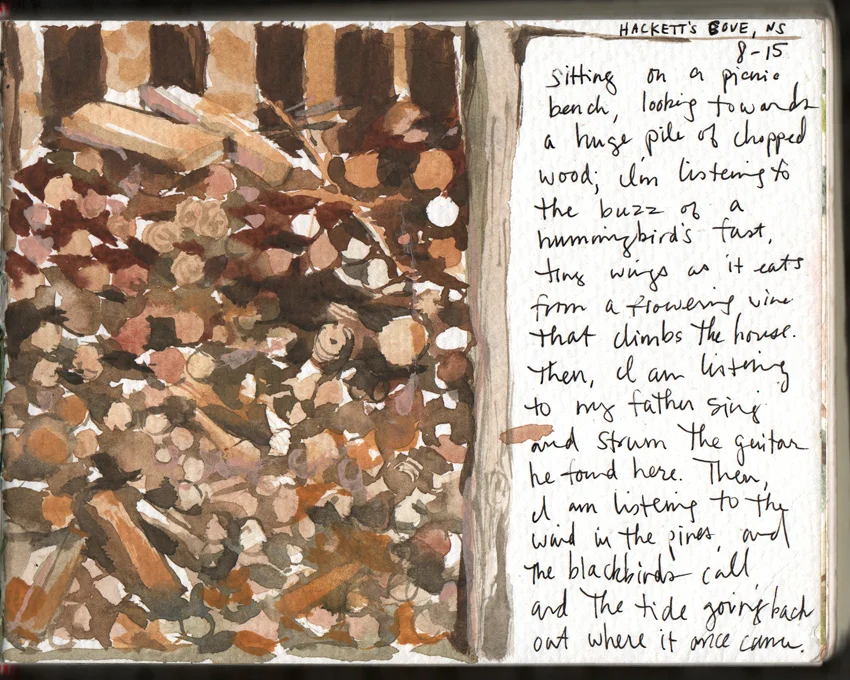 HACKETT'S COVE, NS
8-15
Sitting on a picnic
bench, looking towards
a huge pile of chopped
wood; I'm listening to
the buzz of a
hummingbird's fast,
tiny wings as it eats
from a flowering vine
that climbs the house.
Then, I am listening
to my father sing
and strum the guitar
he found here. Then,
I am listening to the
wind in the pines, and
the blackbirds call,
and the tide going back
out where it once came.